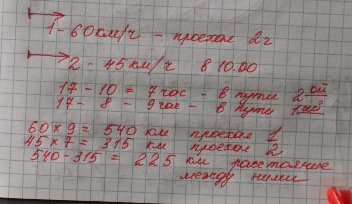 1 - 60 км/ч - проехал 2 г
2 - 45 км/ч в 10.00
17 - 10 = 7 час - в пути 2ой
17 - 8 - 9 час - в пути 1ый
60 х 9 = 540 км проехал 1
45 х 7 = 315 км проехал 2
540 - 315 = 225 км расстояние
между ними